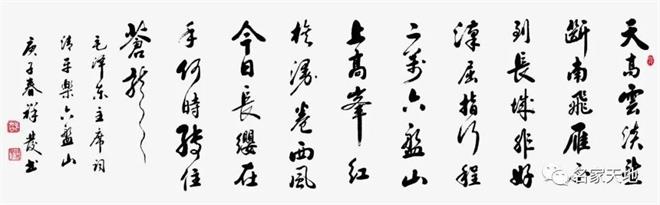 天高雲淡望
斷南飛雁不
到長城非好
漢屈指行程
二萬六盤山
上高峯紅
旗漫卷西風
今日長纓在
手何時縛住
蒼龍
毛澤東主席詞
清平樂六盤山
庚子春祥發書
名家天地